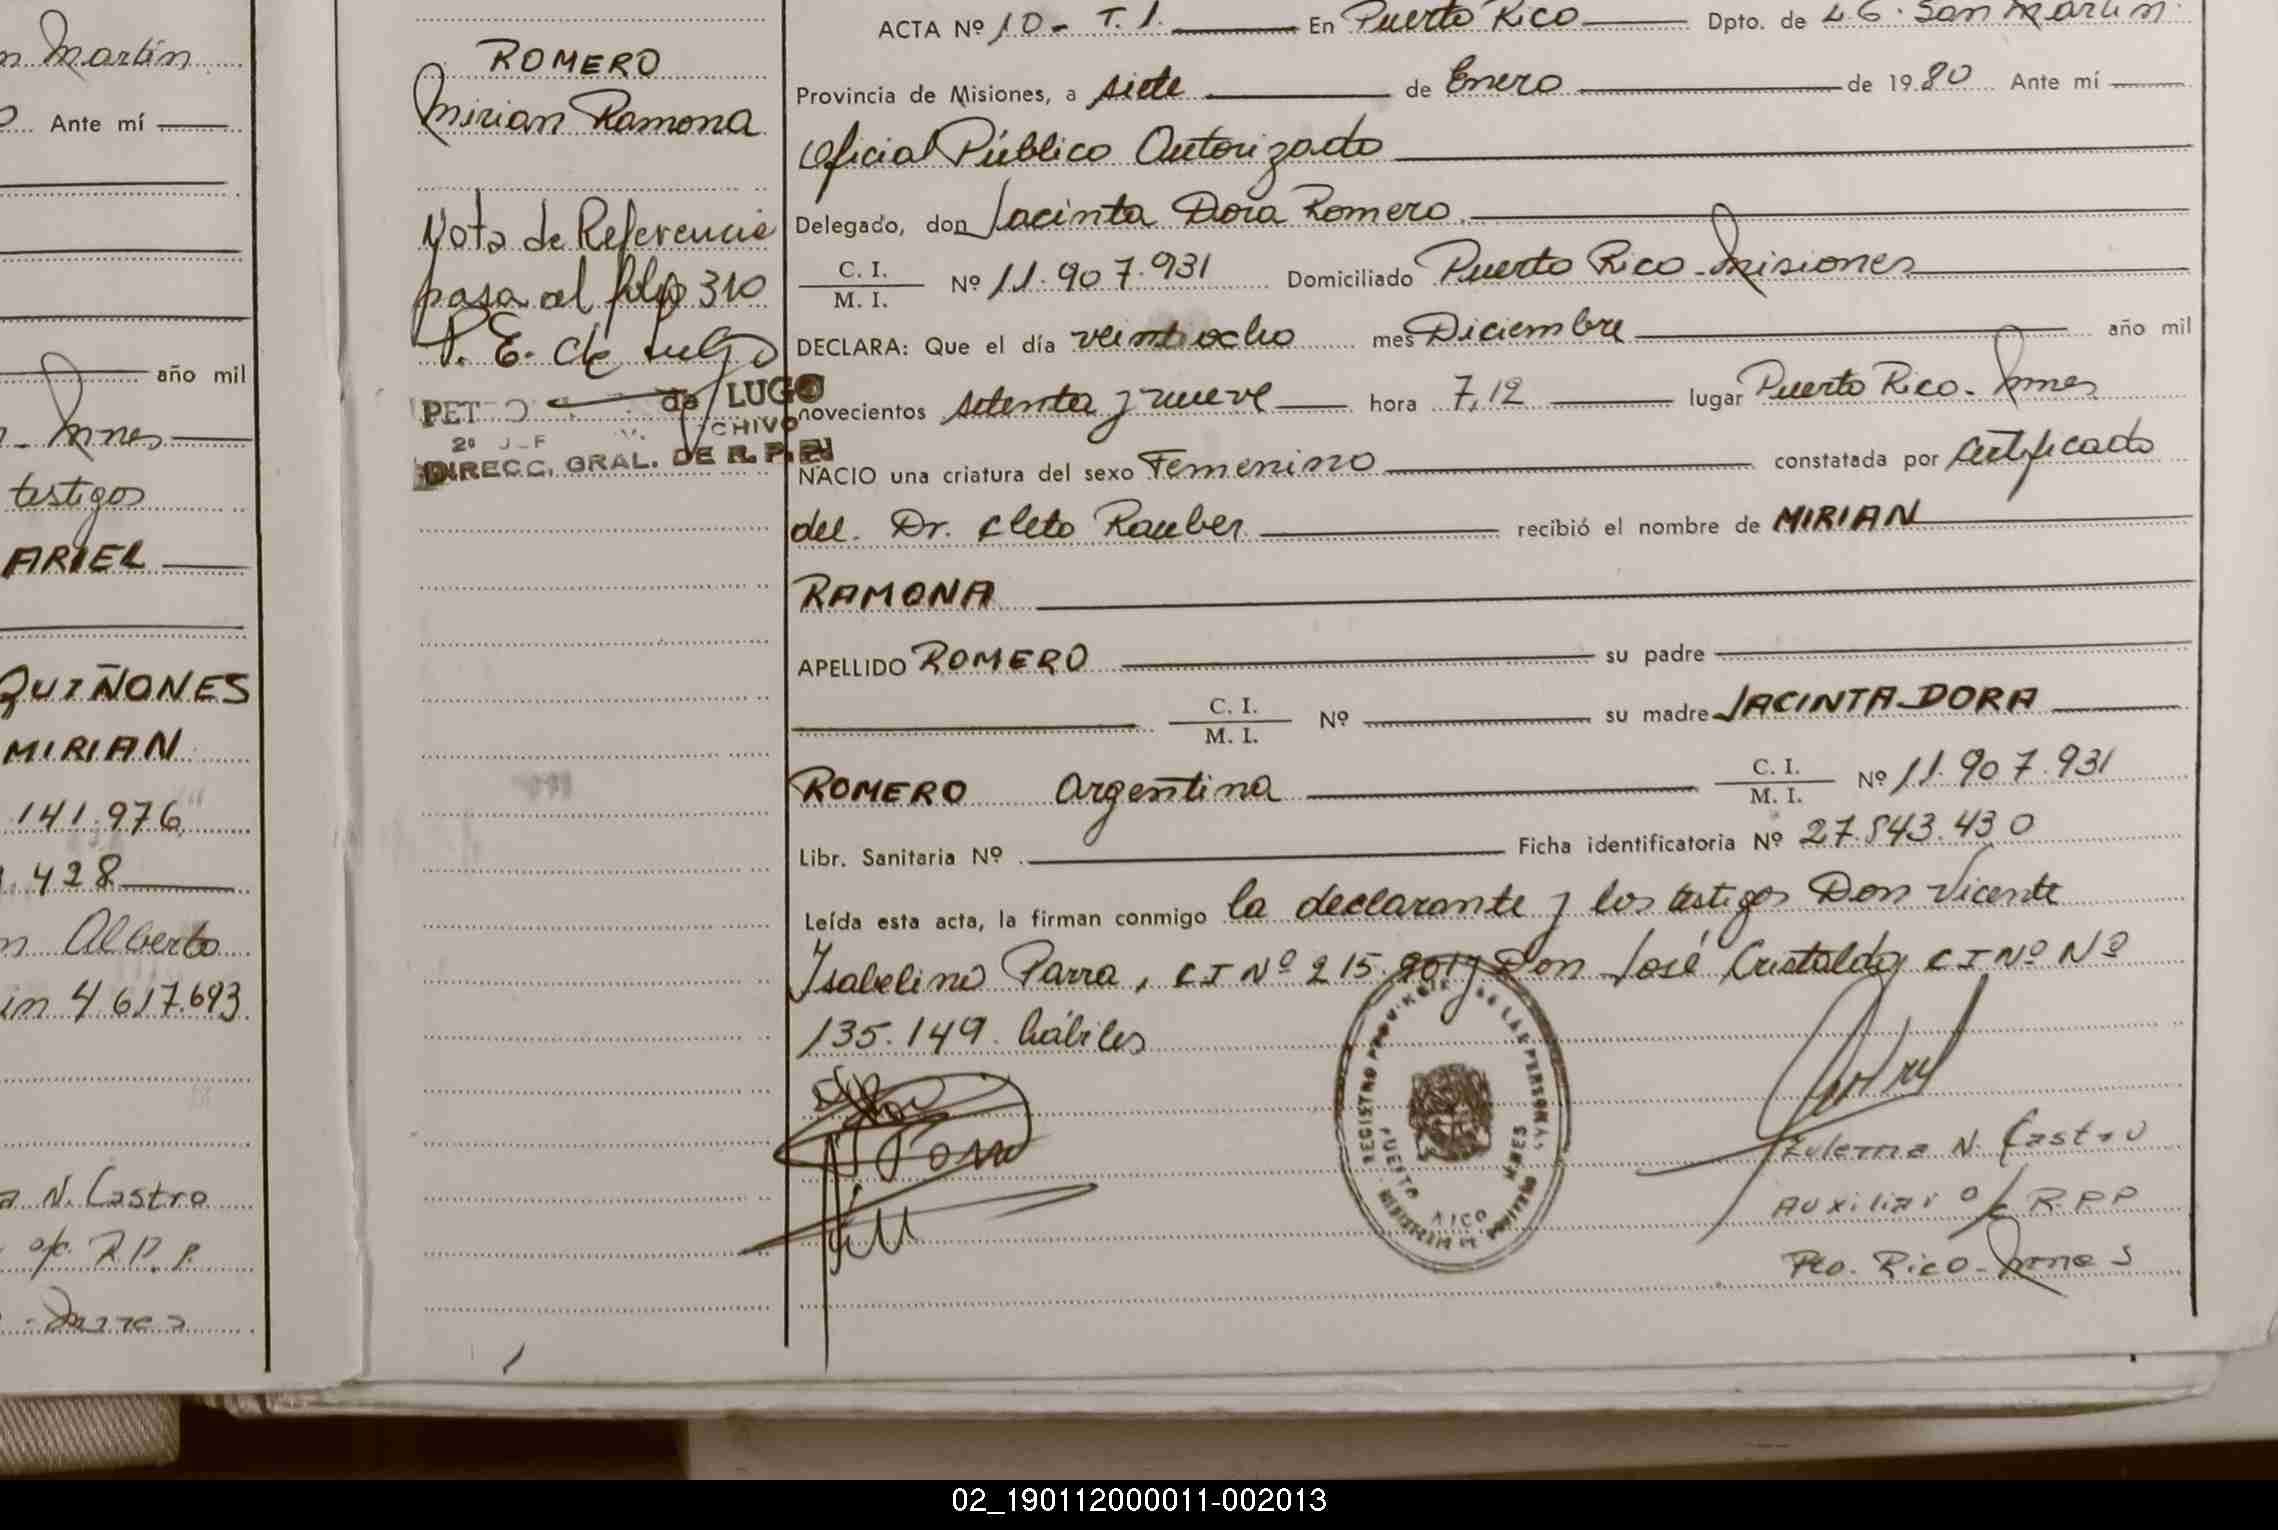 n Martín
Ante mí
año mil
- Mnes
testigos
ARIEL
QUIÑONES
MIRIAN
141.976
.428
n Alberto
in 4.617.693
a N. Castro
o/c. R.P.P.
- Mnes
ROMERO
Mirian Ramona
Nota de Referencia
pasa al folio 310
P. E. de Lugo
PET de LUGO
CHIVO
DIRECC. GRAL. DE R. P. P.
ACTA Nº 10 - T. 1. En Puerto Rico Dpto. de L.G. San Martín
Provincia de Misiones, a siete de Enero de 1980 Ante mí
Oficial Público Autorizado
Delegado, don Jacinta Dora Romero
C. I. / M. I. Nº 11.907.931 Domiciliado Puerto Rico - Misiones
DECLARA: Que el día veintiocho mes Diciembre año mil
novecientos setenta y nueve hora 7,12 lugar Puerto Rico - Mnes
NACIO una criatura del sexo Femenino constatada por Certificado
del. Dr. Cleto Rauber recibió el nombre de MIRIAN
RAMONA
APELLIDO ROMERO su padre
C. I. / M. I. Nº su madre JACINTA DORA
ROMERO Argentina C. I. / M. I. Nº 11.907.931
Libr. Sanitaria Nº Ficha identificatoria Nº 27.543.430
Leída esta acta, la firman conmigo la declarante y los testigos Don Vicente
Isabelino Parra, CI Nº 215.901 y Don José Cristaldo CI Nº Nº
135.149. hábiles
REGISTRO PROVINCIAL DE LAS PERSONAS
PUERTO RICO
MNES
Zulema N. Castro
Auxiliar o/c R.P.P
Pto. Rico - Mnes
02_190112000011-002013